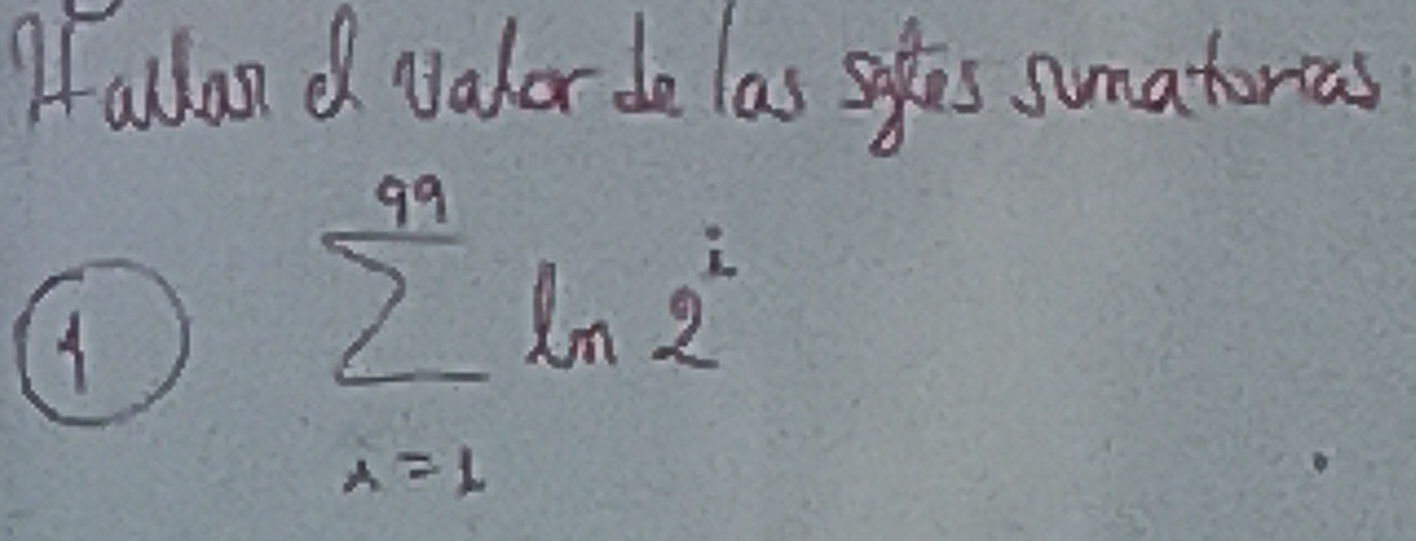 Hallar el valor de las sgtes sumatorias
99
① ∑ ln 2^i
i=1